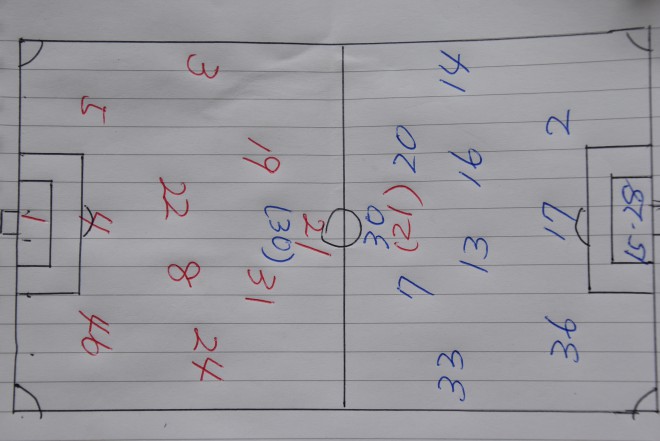 2 17 36
14 16 13 33
20 (21) 7
30
21
(30)
19 31
3 22 8 24
5 4 46
1